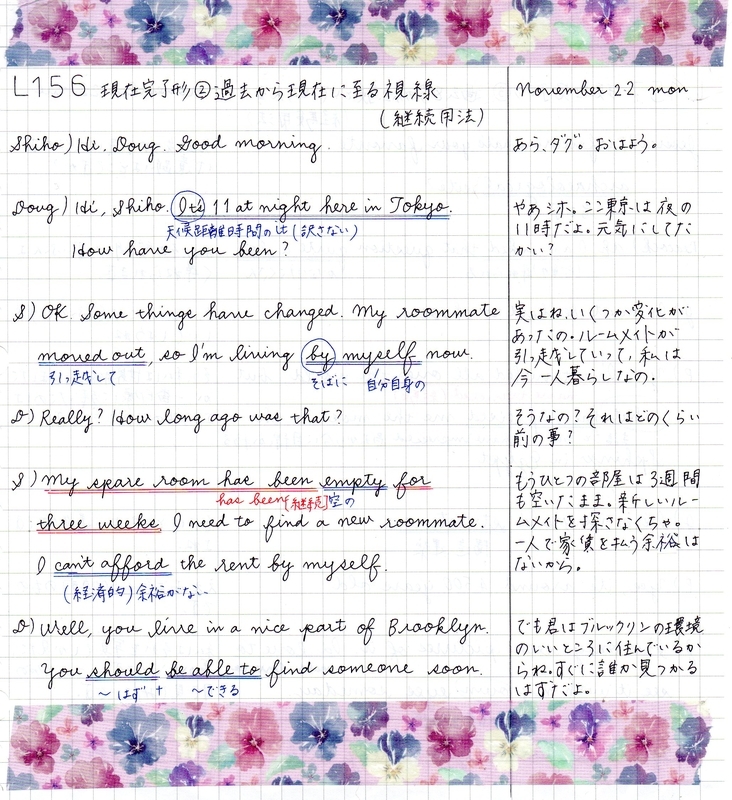 L156 現在完了形②過去から現在に至る視線
(継続用法)
November 22 mon
Shiho) Hi, Doug. Good morning.
あら、ダグ。おはよう。
Doug) Hi, Shiho. It's 11 at night here in Tokyo.
天候距離時間のit (訳さない)
How have you been?
やあシホ。ここ東京は夜の
11時だよ。元気にしてた
かい?
S) OK. Some things have changed. My roommate
moved out, so I'm living by myself now.
引っ越して
そばに
自分自身の
実はね、いくつか変化が
あったの。ルームメイトが
引っ越していって、私は
今一人暮らしなの。
D) Really? How long ago was that?
そうなの?それはどのくらい
前の事?
S) My spare room has been empty for
has been[継続]空の
three weeks. I need to find a new roommate.
I can't afford the rent by myself.
(経済的)余裕がない
もうひとつの部屋は3週間
も空いたまま。新しいルー
ムメイトを探さなくちゃ。
一人で家賃を払う余裕は
ないから。
D) Well, you live in a nice part of Brooklyn.
You should be able to find someone soon.
～はず + ～できる
でも君はブルックリンの環境
のいいところに住んでいるか
らね。すぐに誰か見つかる
はずだよ。